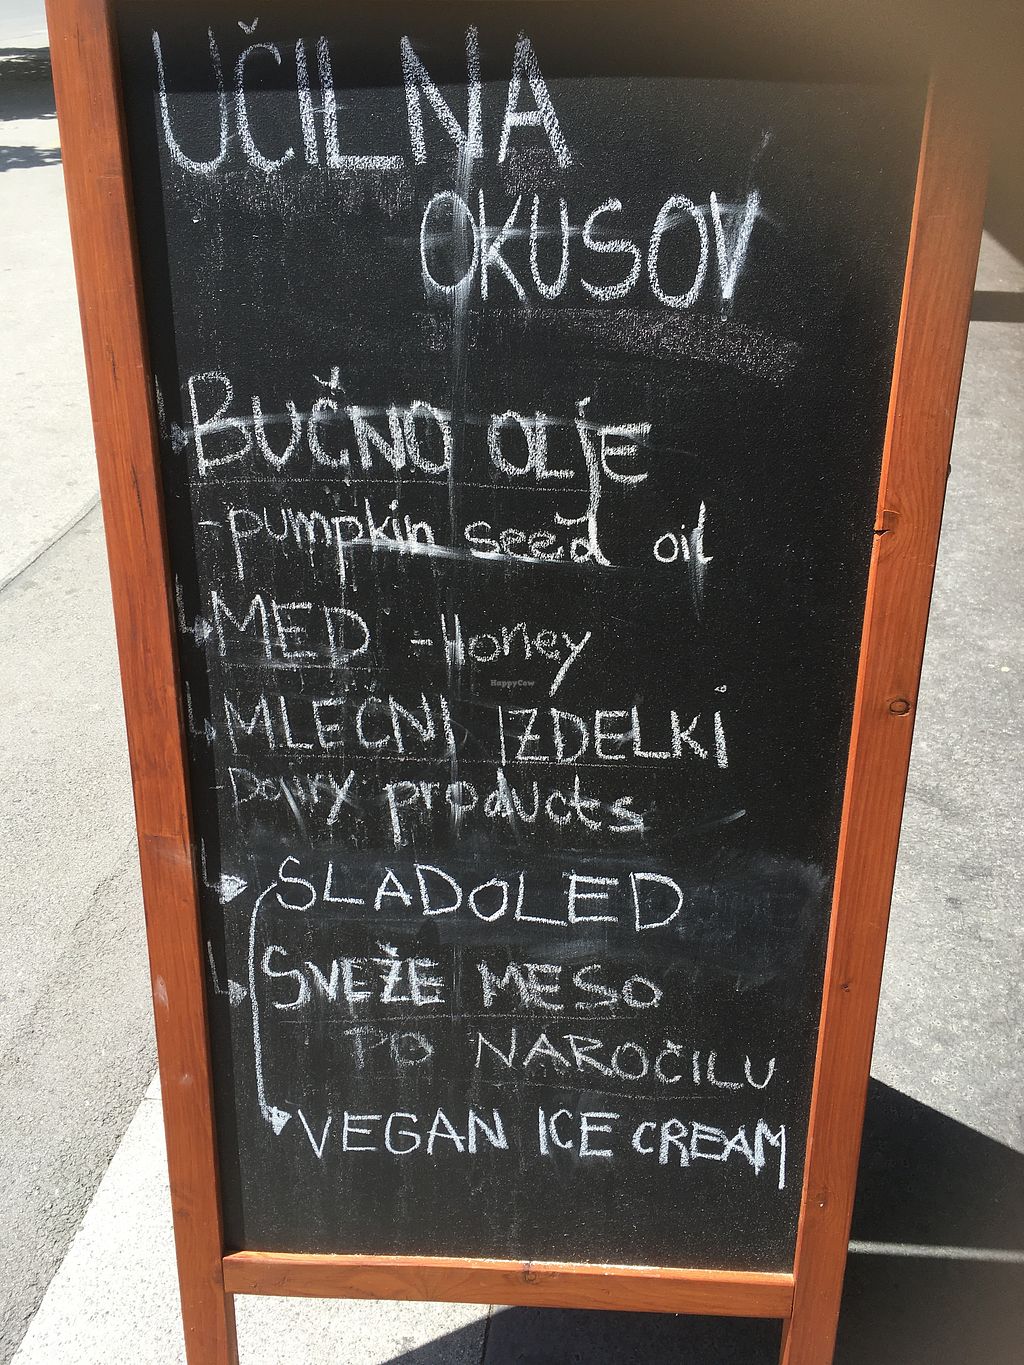 UČILNA
OKUSOV
BUČNO OLJE
- pumpkin seed oil
MED - Honey
HappyCow
MLEČNI IZDELKI
- Dairy products
SLADOLED
SVEŽE MESO
PO NAROČILU
VEGAN ICE CREAM